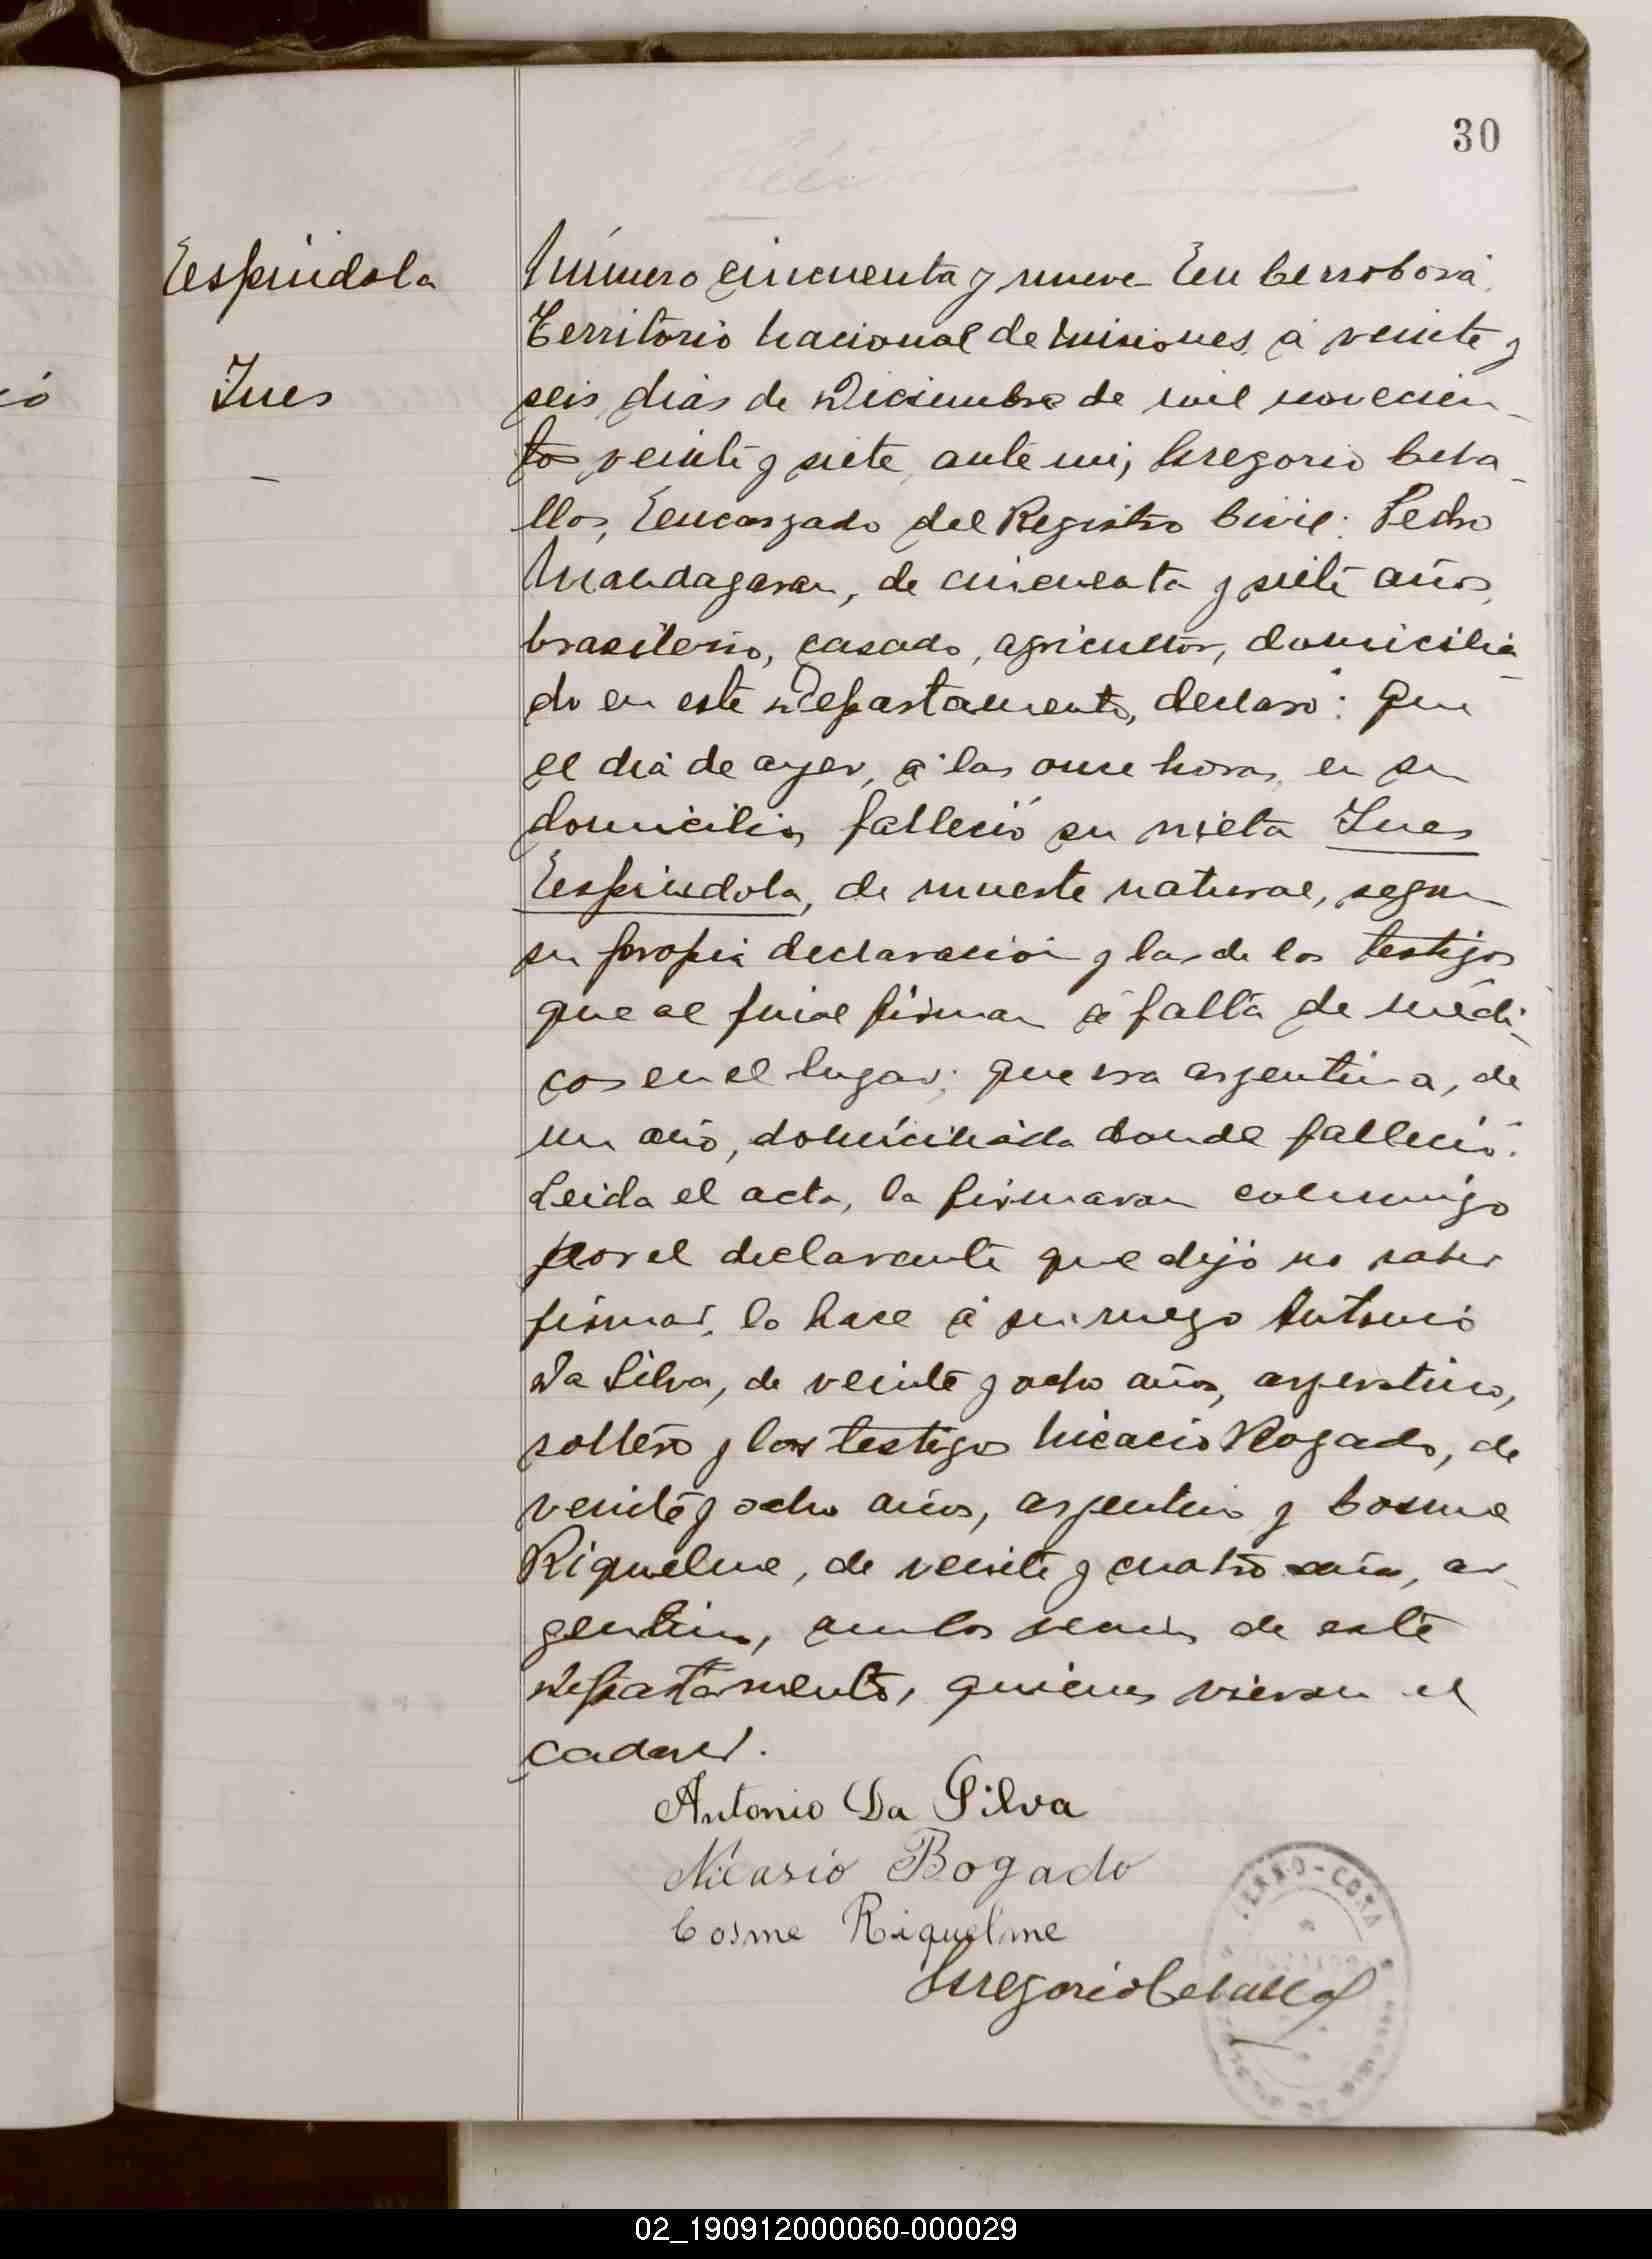 30
Espindola
Ines
Número cincuenta y nueve En Cerro Corá,
Territorio Nacional de Misiones, á veinte y
seis dias de Diciembre de mil novecien-
tos veinte y siete, ante mi, Gregorio Ceba-
llos, Encargado del Registro Civil: Pedro
Mandagaran, de cincuenta y siete años,
brasilero, casado, agricultor, domicilia-
do en este Departamento, declaró: Que
el dia de ayer, á las once horas, en su
domicilio, falleció su nieta Ines
Espindola, de muerte natural, segun
su propia declaración y las de los testigos
que al final firman á falta de médi-
cos en el lugar; que era argentina, de
un año, domiciliada donde falleció.
Leida el acta, la firmaron conmigo
por el declarante que dijo no saber
firmar, lo hace á su ruego Antonio
Da Silva, de veinte y ocho años, argentino,
soltero y los testigos Nicacio Bogado, de
veinte y ocho años, argentino y Cosme
Riquelme, de veinte y cuatro años, ar-
gentino, ambos vecinos de este
departamento, quienes vieron el
cadaver.
Antonio Da Silva
Nicasio Bogado
Cosme Riquelme
Gregorio Ceballos
CERRO-CORA
02_190912000060-000029